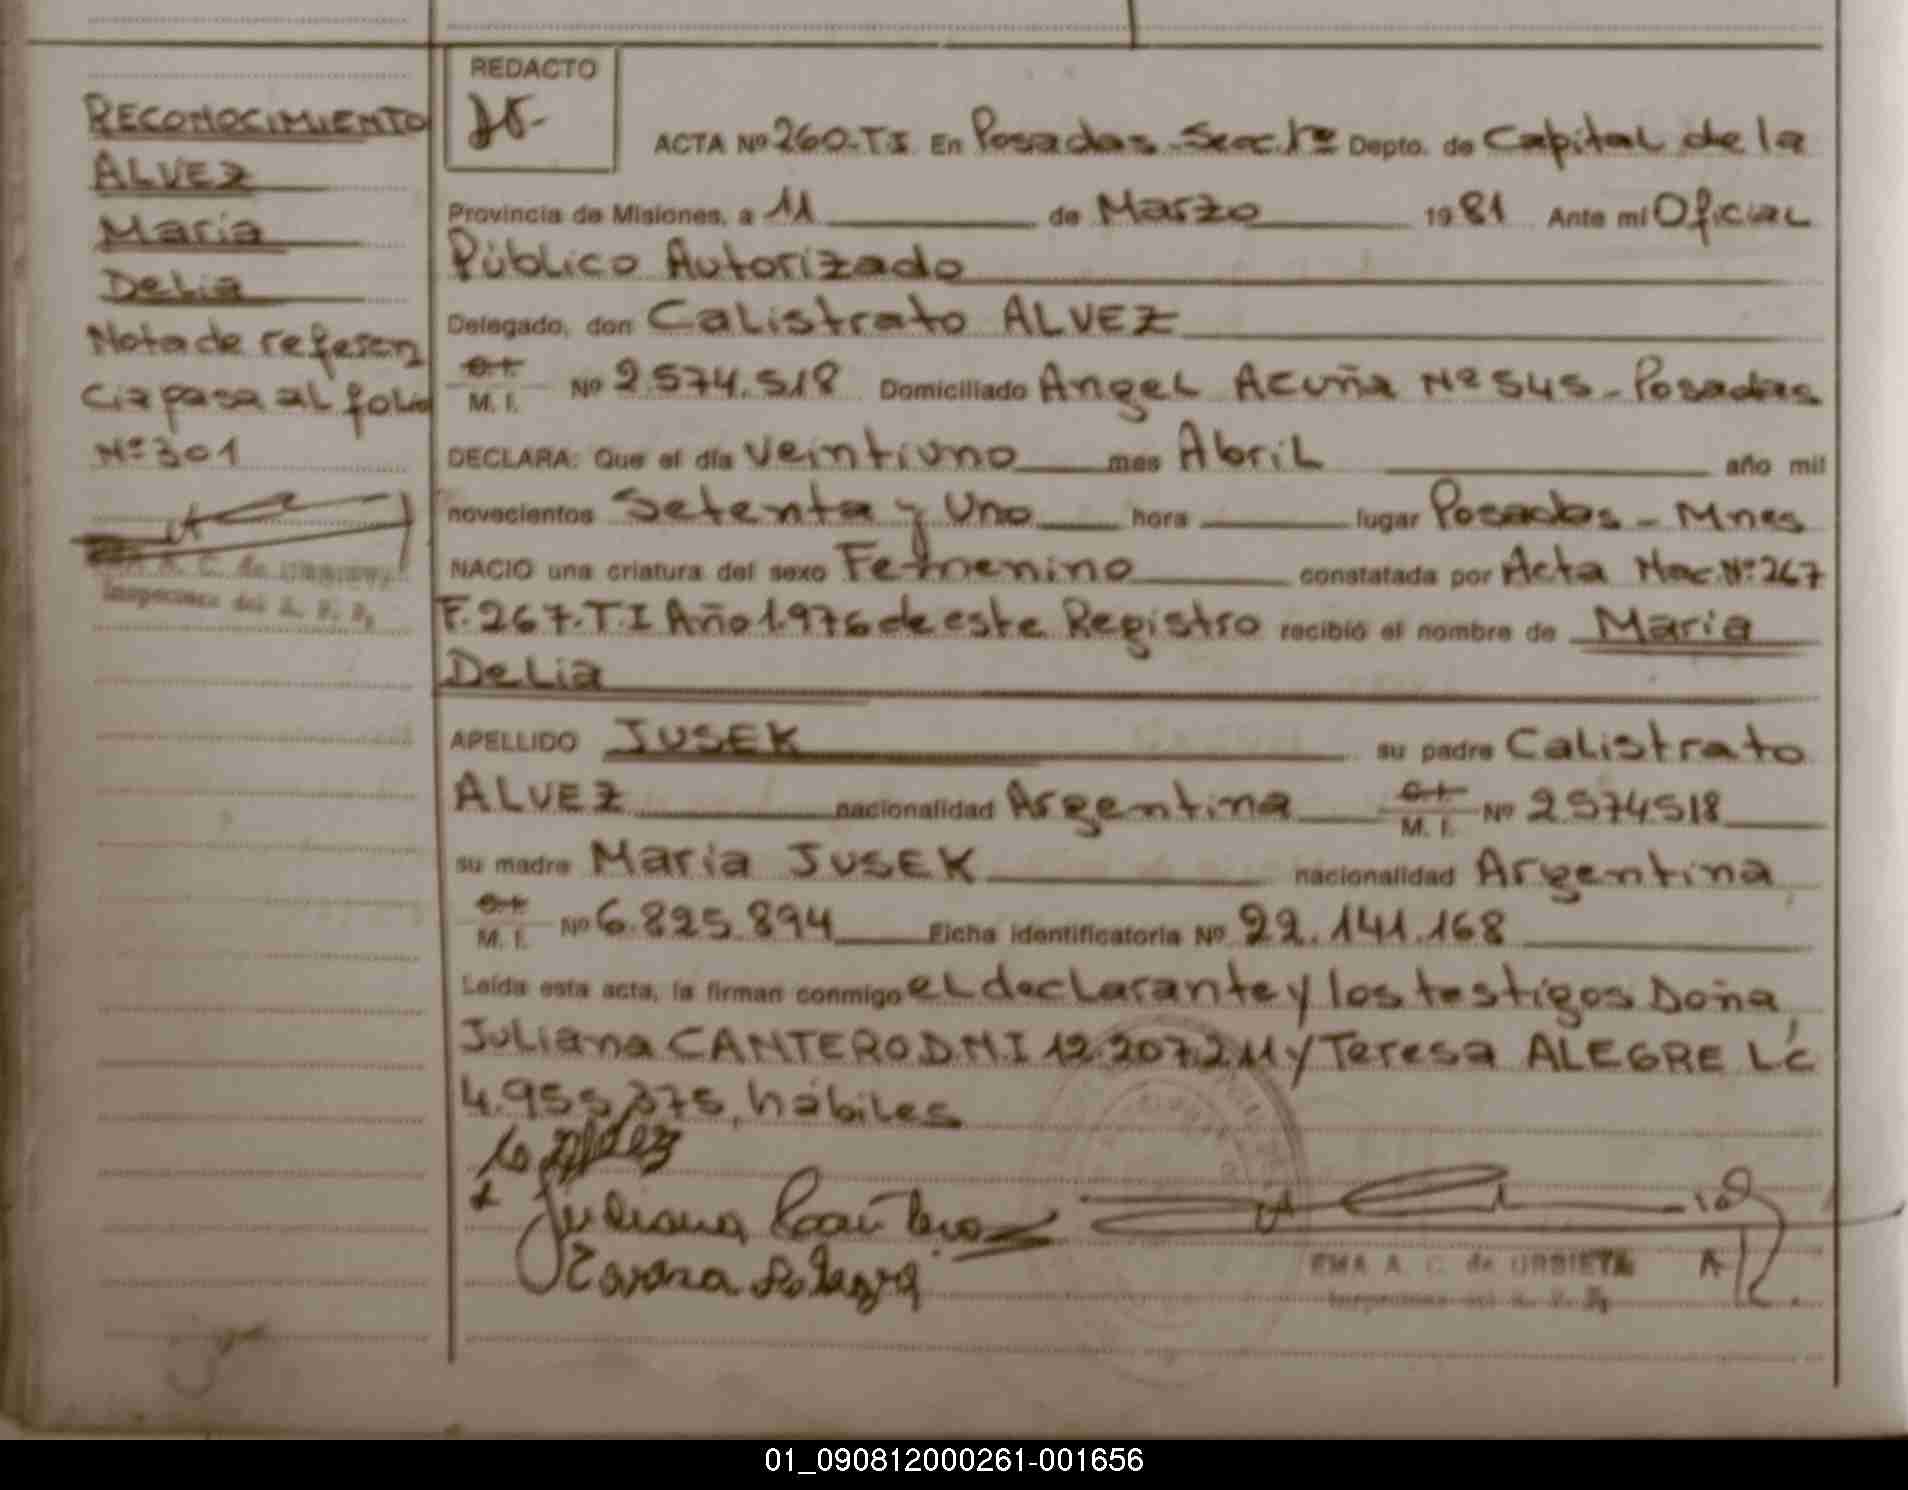 RECONOCIMIENTO
ALVEZ
Maria
Delia
Nota de referen
cia pasa al folio
Nº 301
A. C. de URBIETA
Inspectora del R. P. P.
REDACTO
ACTA Nº 260-T.I. En Posadas-Secc.1ª Depto. de Capital de la
Provincia de Misiones, a 11 de Marzo 1981 Ante mí Oficial
Público Autorizado
Delegado, don Calistrato ALVEZ
M. I. Nº 2.574.518 Domiciliado Angel Acuña Nº 545-Posadas
DECLARA: Que el día veintiuno mes Abril año mil
novecientos Setenta y Uno hora lugar Posadas - Mnes
NACIO una criatura del sexo Femenino constatada por Acta Nac. Nº 267
F. 267. T. I Año 1.976 de este Registro recibió el nombre de Maria
Delia
APELLIDO JUSEK su padre Calistrato
ALVEZ nacionalidad Argentina M. I. Nº 2574518
su madre Maria JUSEK nacionalidad Argentina
M. I. Nº 6.825.894 Ficha identificatoria Nº 22.141.168
Leída esta acta, la firman conmigo el declarante y los testigos Doña
Juliana CANTERO D.N.I 12.207.211 y Teresa ALEGRE L.C
4.955.375, hábiles
Juliana Cantero
EMA A. C. de URBIETA
01_090812000261-001656